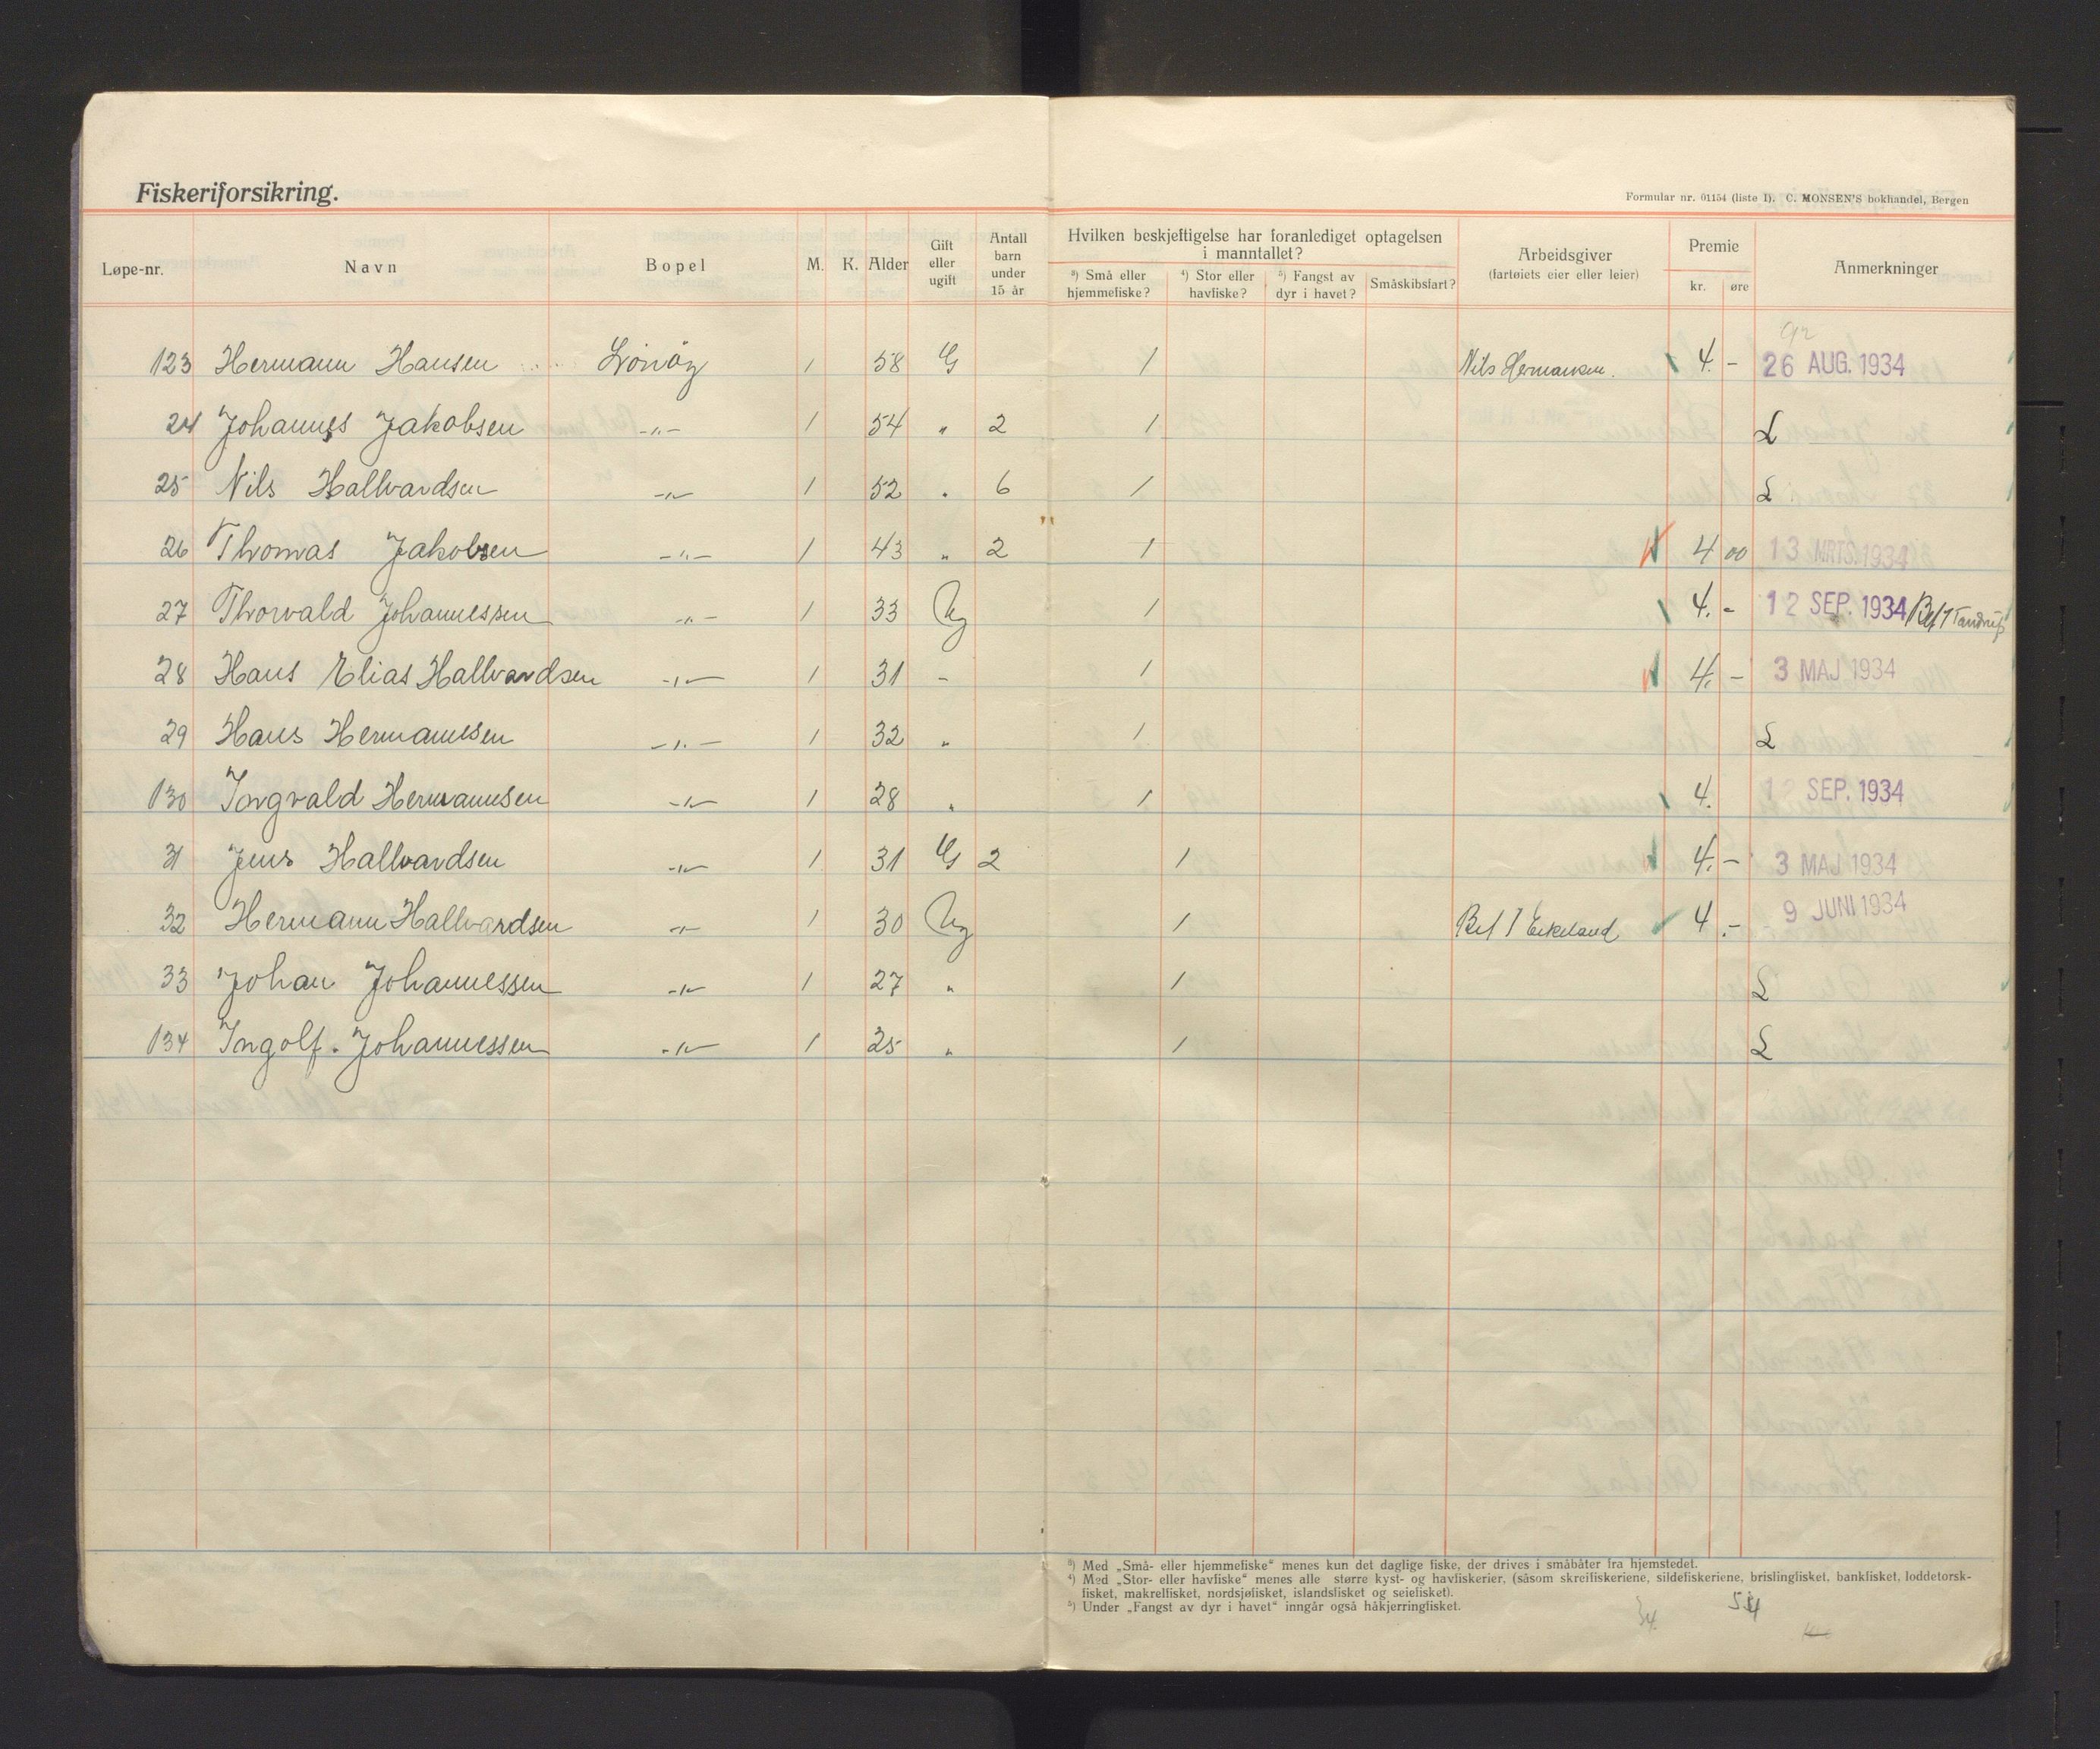 Fiskeriforsikring.
Formular nr. 01154 (liste 1). C. MONSEN'S bokhandel, Bergen
Løpe-nr. Navn Bopel M. K. Alder Gift eller ugift Antall barn under 15 år Hvilken beskjeftigelse har foranlediget optagelsen i manntallet? ³) Små eller hjemmefiske? ⁴) Stor eller havfiske? ⁵) Fangst av dyr i havet? Småskibsfart? Arbeidsgiver (fartøiets eier eller leier) Premie kr. øre Anmerkninger
123 Hermann Hansen Lönöy 1 58 G 1 Nils Hermansen. 4. - 26 AUG. 1934
24 Johannes Jakobsen -"- 1 54 " 2 1 L
25 Nils Hallvardsen -"- 1 52 " 6 1 L
26 Thomas Jakobsen -"- 1 43 " 2 1 4 00 13 MRTS. 1934
27 Thorvald Johannessen -"- 1 33 Ug 1 4. - 12 SEP. 1934 Bet J Tandrup
28 Hans Elias Hallvardsen -"- 1 31 - 1 4. - 3 MAJ 1934
29 Hans Hermannsen -"- 1 32 " 1 L
130 Ingvald Hermannsen -"- 1 28 " 1 4. 12 SEP. 1934
31 Jens Hallvardsen -"- 1 31 G 2 1 4. - 3 MAJ 1934
32 Hermann Hallvardsen -"- 1 30 Ug 1 Bet J Eikeland 4 .- 9 JUNI 1934
33 Johan Johannessen -"- 1 27 " 1 L
134 Ingolf. Johannessen -"- 1 25 " 1 L
³) Med „Små- eller hjemmefiske“ menes kun det daglige fiske, der drives i småbåter fra hjemstedet.
⁴) Med „Stor- eller havfiske“ menes alle større kyst- og havfiskerier, (såsom skreifiskeriene, sildefiskeriene, brislingfisket, bankfisket, loddetorsk-
fisket, makrelfisket, nordsjøfisket, islandsfisket og seiefisket).
⁵) Under „Fangst av dyr i havet“ inngår også håkjerringfisket.
34.